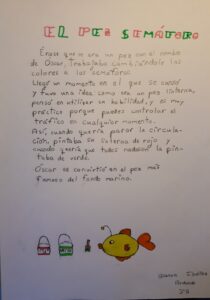 EL PEZ SEMÁFORO
Érase que se era un pez con el nombre
de Oscar. Trabajaba cambiándole los
colores a los semáforos.
Llegó un momento en el que se cansó
y tuvo una idea como era un pez linterna,
pensó en utilizar su habilidad, y es muy
práctico porque puedes controlar el
tráfico en cualquier momento.
Así, cuando quería parar la circula-
ción, pintaba su linterna de rojo y
cuando quería que todos nadasen la pin-
taba de verde.
Oscar se convirtió en el pez más
famoso del fondo marino.